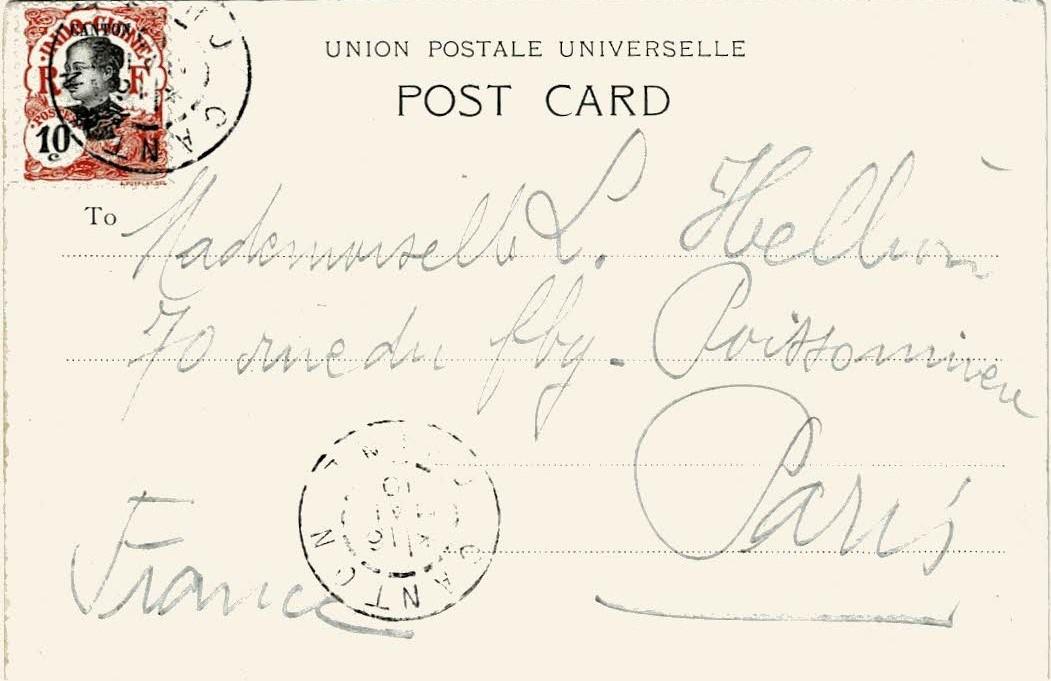 INDO-CHINE
CANTON
R F
POSTES
10
c
UNION POSTALE UNIVERSELLE
POST CARD
To
Mademoiselle L. Hellion
70 rue du fbg. Poissonniere
Paris
France
CANTON